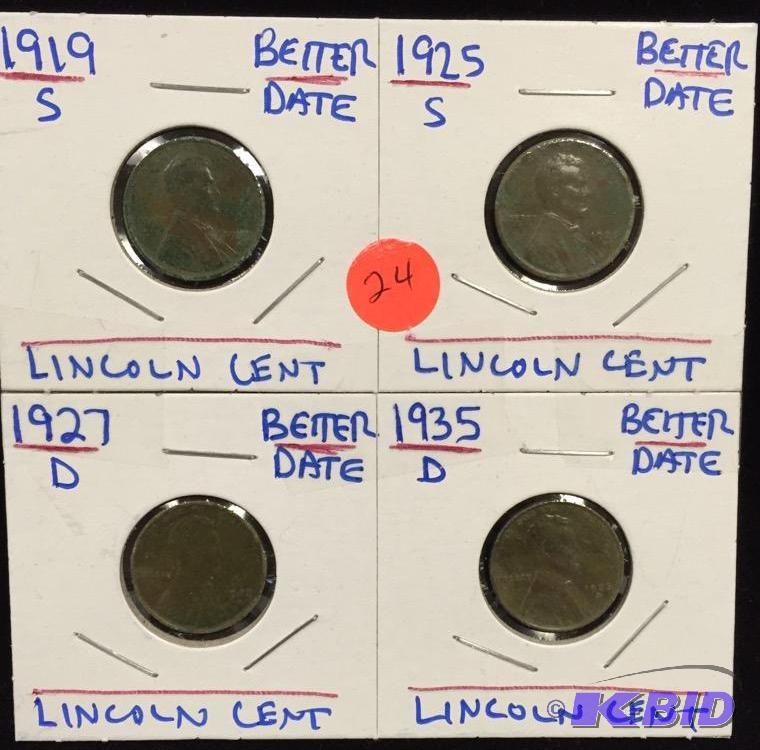 1919
S
BETTER
DATE
LINCOLN CENT
1925
S
BETTER
DATE
LINCOLN CENT
24
1927
D
BETTER
DATE
LINCOLN CENT
1935
D
BETTER
DATE
LINCOLN CENT
© K-BID